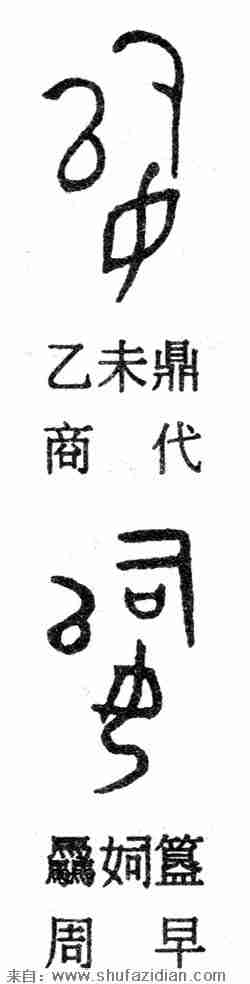 乙未鼎
商代
驫㚸簋
周早
来自：www.shufazidian.com